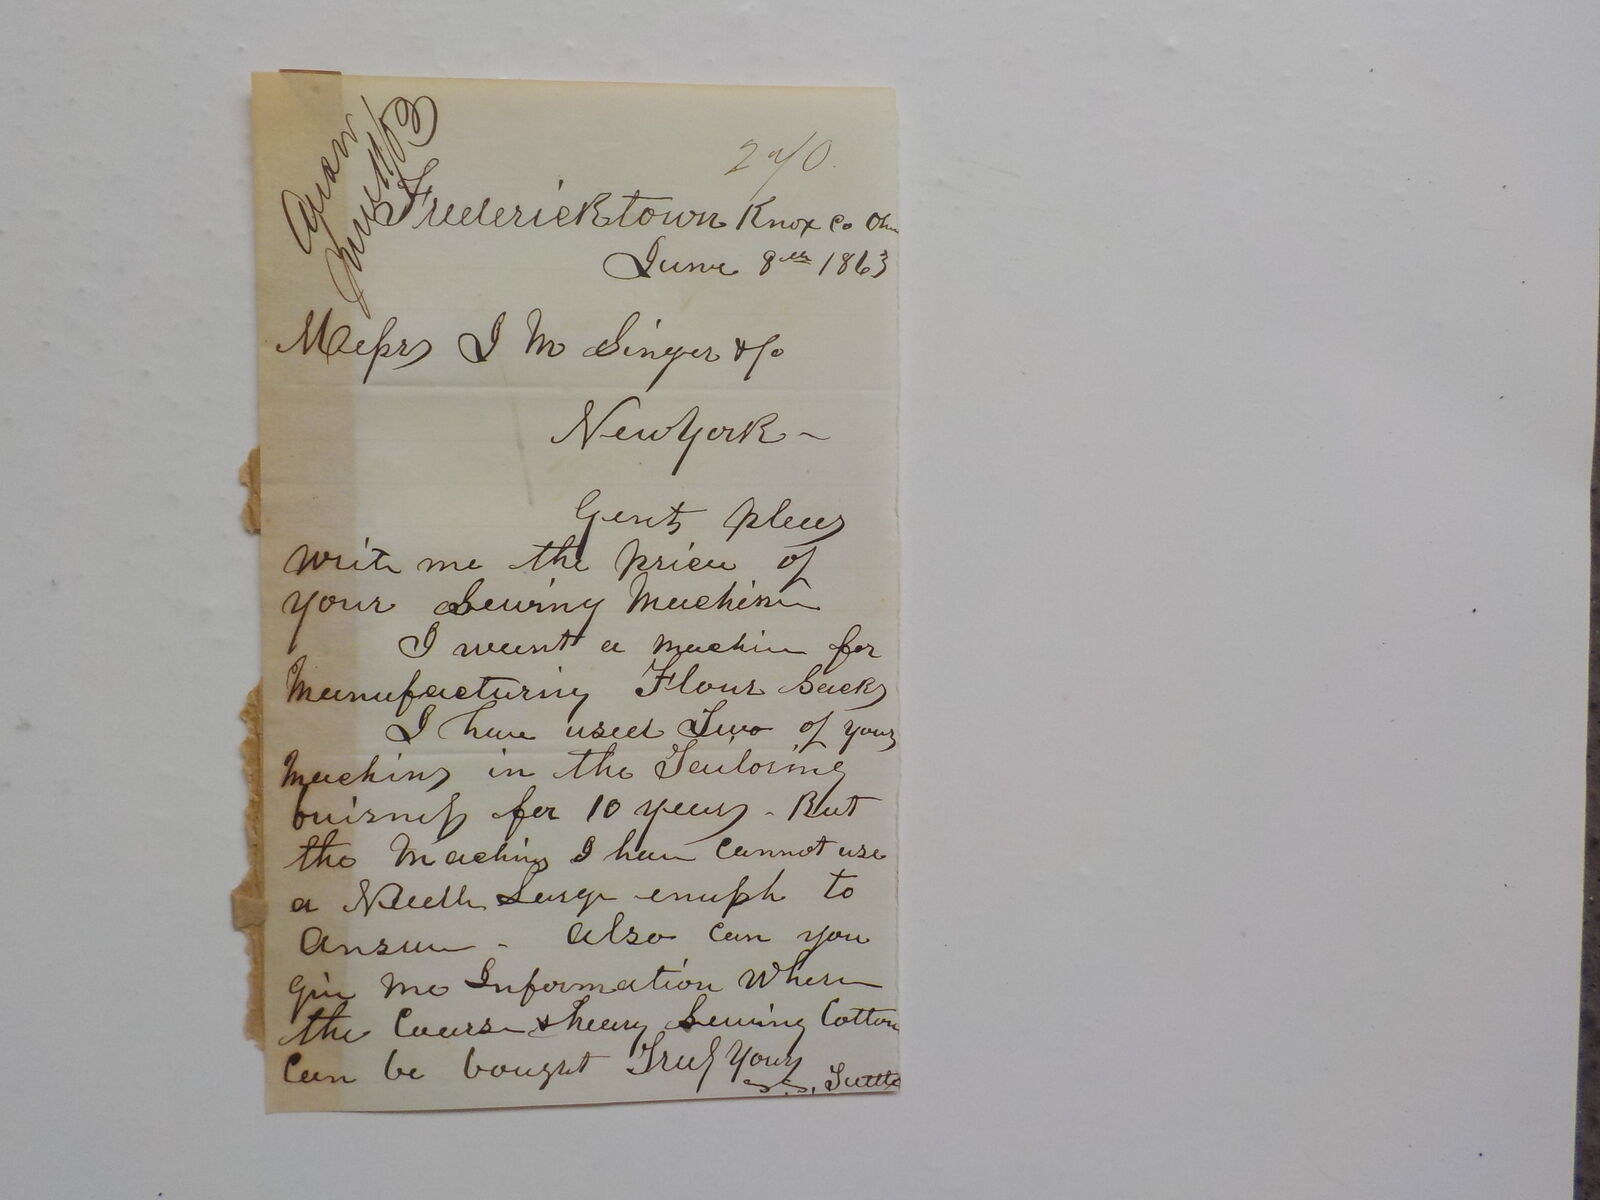 Answ
June 11/63
Fredericktown Knox Co Ohio
June 8th 1863
Messrs I M Singer & Co
New York -
Gents pleas
write me the price of
your Sewing Machine
I want a machin for
Manufacturing Flour Sacks
I have used Two of your
Machins in the Tailoring
buisness for 10 years - But
the Machins I have Cannot use
a Needle Large enuph to
Answer - Also Can you
give me Information Where
the Course & heavy Sewing Cotton
Can be bought Truly Yours
S. S. Tuttle